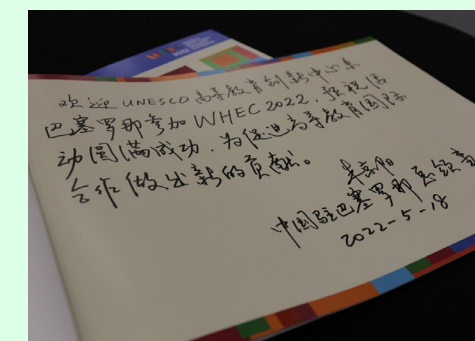 欢迎UNESCO高等教育创新中心来
巴塞罗那参加WHEC2022,预祝活
动圆满成功,为促进高等教育国际
合作做出新的贡献。
中国驻巴塞罗那总领事
2022-5-18